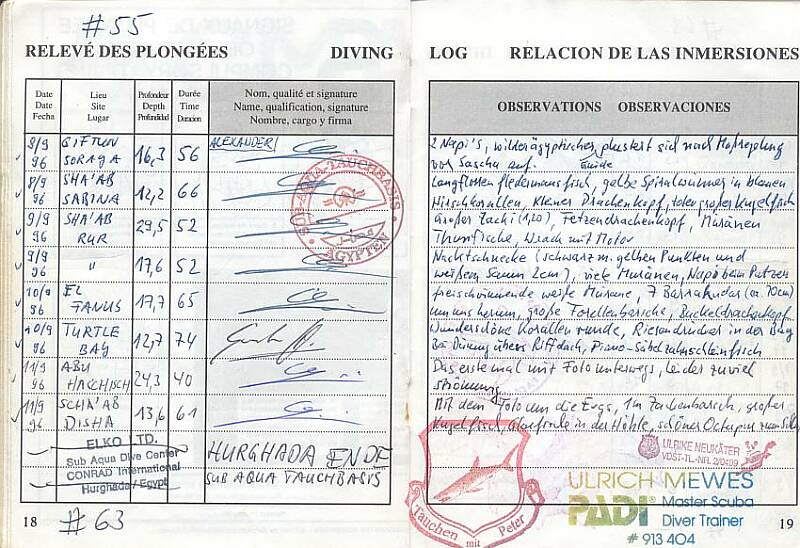 #55
RELEVÉ DES PLONGÉES DIVING
Date Date Fecha
Lieu Site Lugar
Profondeur Depth Profundidad
Durée Time Duracion
Nom, qualité et signature
Name, qualification, signature
Nombre, cargo y firma
8/9 96 GIFTUN SORAYA 16,3 56 ALEXANDER
8/9 96 SHA'AB SABINA 12,2 66
9/9 96 SHA'AB RUR 29,5 52
9/9 96 " 17,6 52
10/9 96 EL FANUS 17,7 65
10/9 96 TURTLE BAY 12,7 74
11/9 96 ABU HASCHISCH 24,3 40
11/9 96 SCHA'AB DISHA 13,6 61
SUB-AQUA-TAUCHBASIS
ÄGYPTEN
ELKO LTD.
Sub Aqua Dive Center
CONRAD International
Hurghada / Egypt
HURGHADA ENDE
SUB AQUA TAUCHBASIS
18
#63
LOG RELACION DE LAS INMERSIONES
OBSERVATIONS OBSERVACIONES
2 Napi's, wilder ägyptischer Guide plustert sich nach
vor Sascha auf.
Langflossenfledermausfisch, gelbe in blauen
Hirschkorallen, kleiner Drachenkopf, toter großer Kugelfisch
Großer Zacki (1,20), Fetzendrachenkopf, Muränen
Thunfische, Wrack mit Motor
Nachtschnecke (schwarz m. gelben Punkten und
weißem Saum 2cm), viele Muränen, Napo beim Putzen
freischwimmende weiße Muräne, 7 Barrakudas (ca. 70cm)
um uns herum, große Forellenbarsche, Buckeldrachenkopf
Wunderschöne Korallenrunde, Riesendrücker in der Bay
Bei Dünung übers Riffdach, Piano-Säbelzahnschleimfisch
Das erste mal mit Foto unterwegs, leider zuviel
Strömung
Mit dem Foto um die Ergs, 1m Zackenbarsch, großer
Kugelfisch, in der Höhle, schöner Octopus
ULRIKE NEUKÄTER
VDST-TL-NR. 2/0409
Tauchen mit Peter
ULRICH MEWES
PADI Master Scuba
Diver Trainer
# 913 404
19